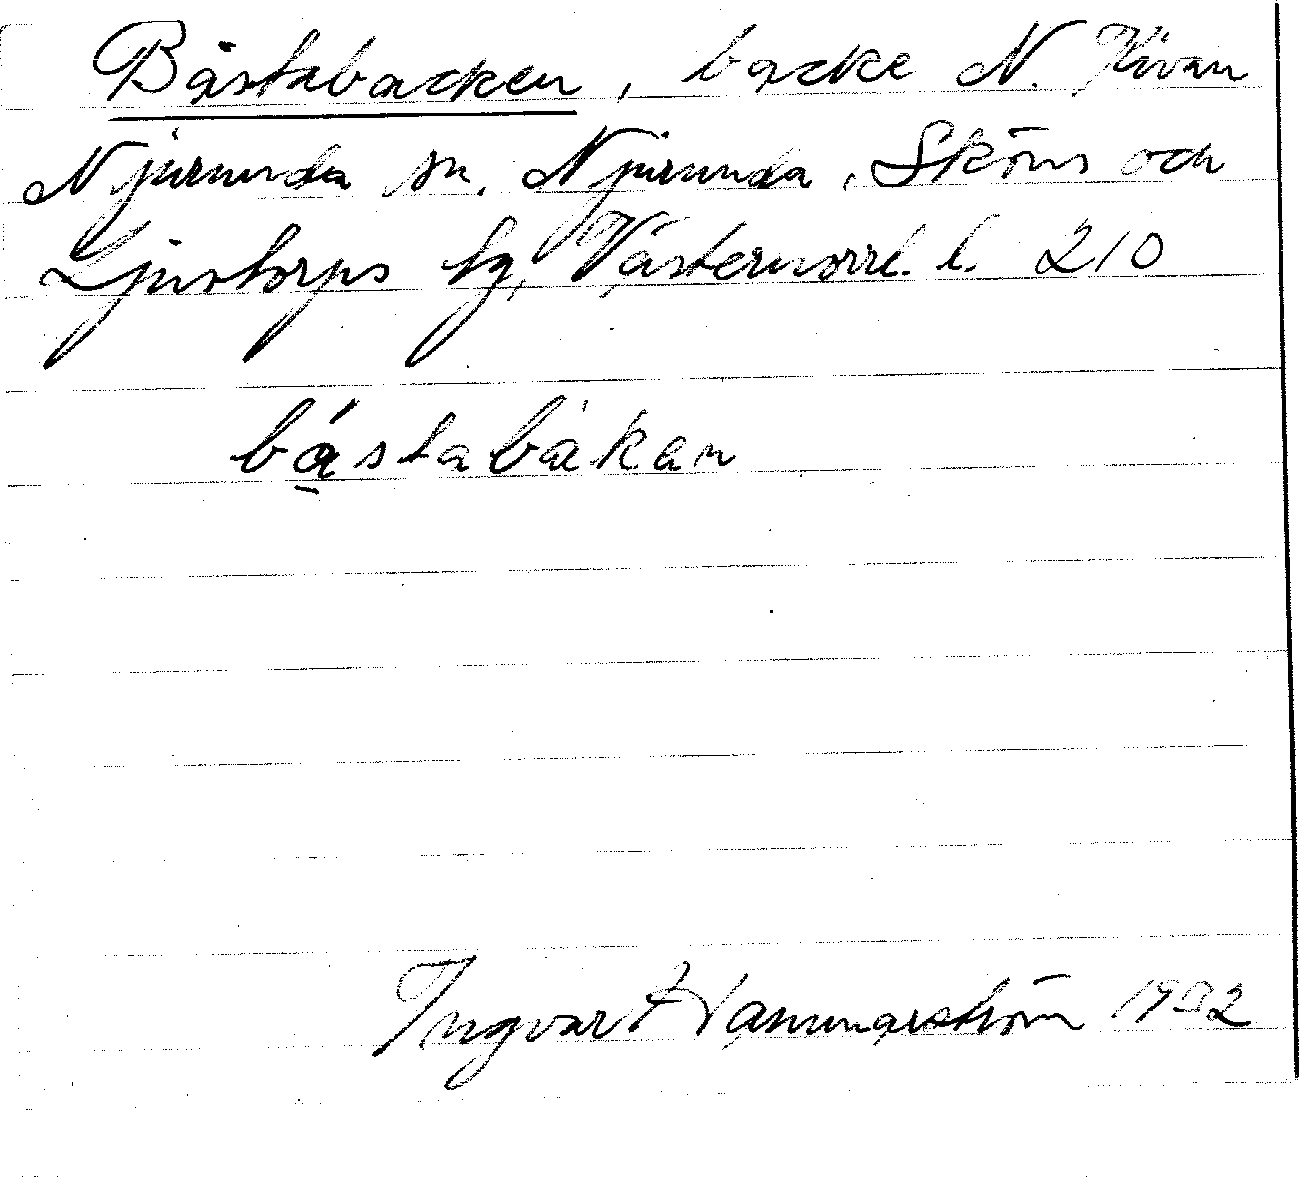 Bästabacken, backe N. Kivan
Njurunda sn. Njurunda, Sköns och
Ljustorps tg, Västernorrl. l. 210
bástabàkan
Ingvar Hammarström 1992